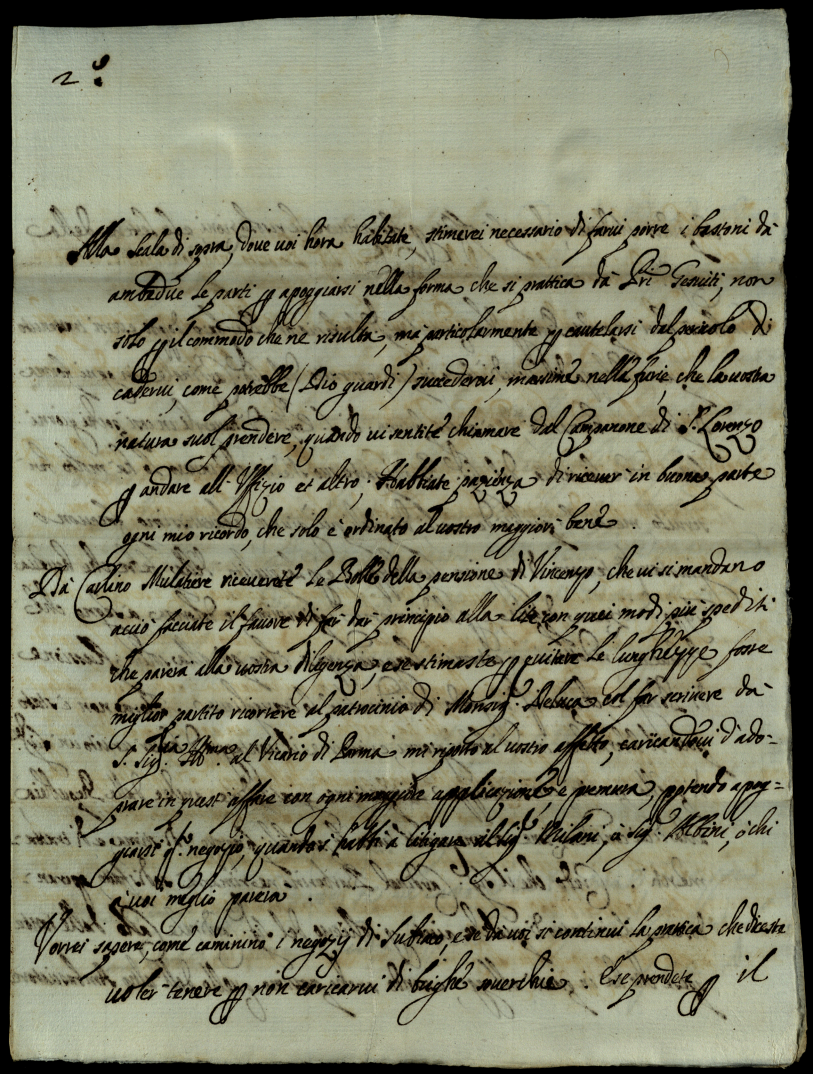 2.º
Alla scala di sopra, dove voi hora habitate, stimerei necessario di farui porre i bastoni da
ambedue le parti p apoggiarsi nella forma che si prattica da Pri Gesuiti, non
solo p il commodo che ne risulta, ma particolarmente p cautelarsi dal pericolo di
caderui, come potrebbe (Dio guardi) succederui, massime nelle furie, che la vostra
natura suol prendere, quando vi sentite chiamare dal Campanone di S. Lorenzo
p andare all'Uffizio et altro. Habbiate pazienza di riceuer in buona parte
ogni mio ricordo, che solo è ordinato al vostro maggior bene.
Da Carlino Mulatiere riceuerete le Bolle della pensione di Vincenzo, che vi si mandano
acciò facciate il fauore di far dar principio alla lite con quei modi più spediti
che parerà alla vostra diligenza, e se stimaste p euitare le lunghezze fosse
miglior partito ricorrere al patrocinio di Monsig.r Deluca col far scriuere da
S. Sig.ria Ill.ma al Vicario di Parma mi riporto al vostro affetto, caricandoui d'ado-
prare in questo affare con ogni maggiore applicazione, e premura, potendo apog-
giarsi q.to negozio, quando si habbi à litigare al Sig.r Milani, ò Sig.r Albini, ò chi
à voi meglio parerà.
Vorrei sapere, come caminino i negozij di Subiaco, e se da voi si continui la prattica che diceste
uoler tenere p non caricarui di brighe souerchie. E se prendete p il